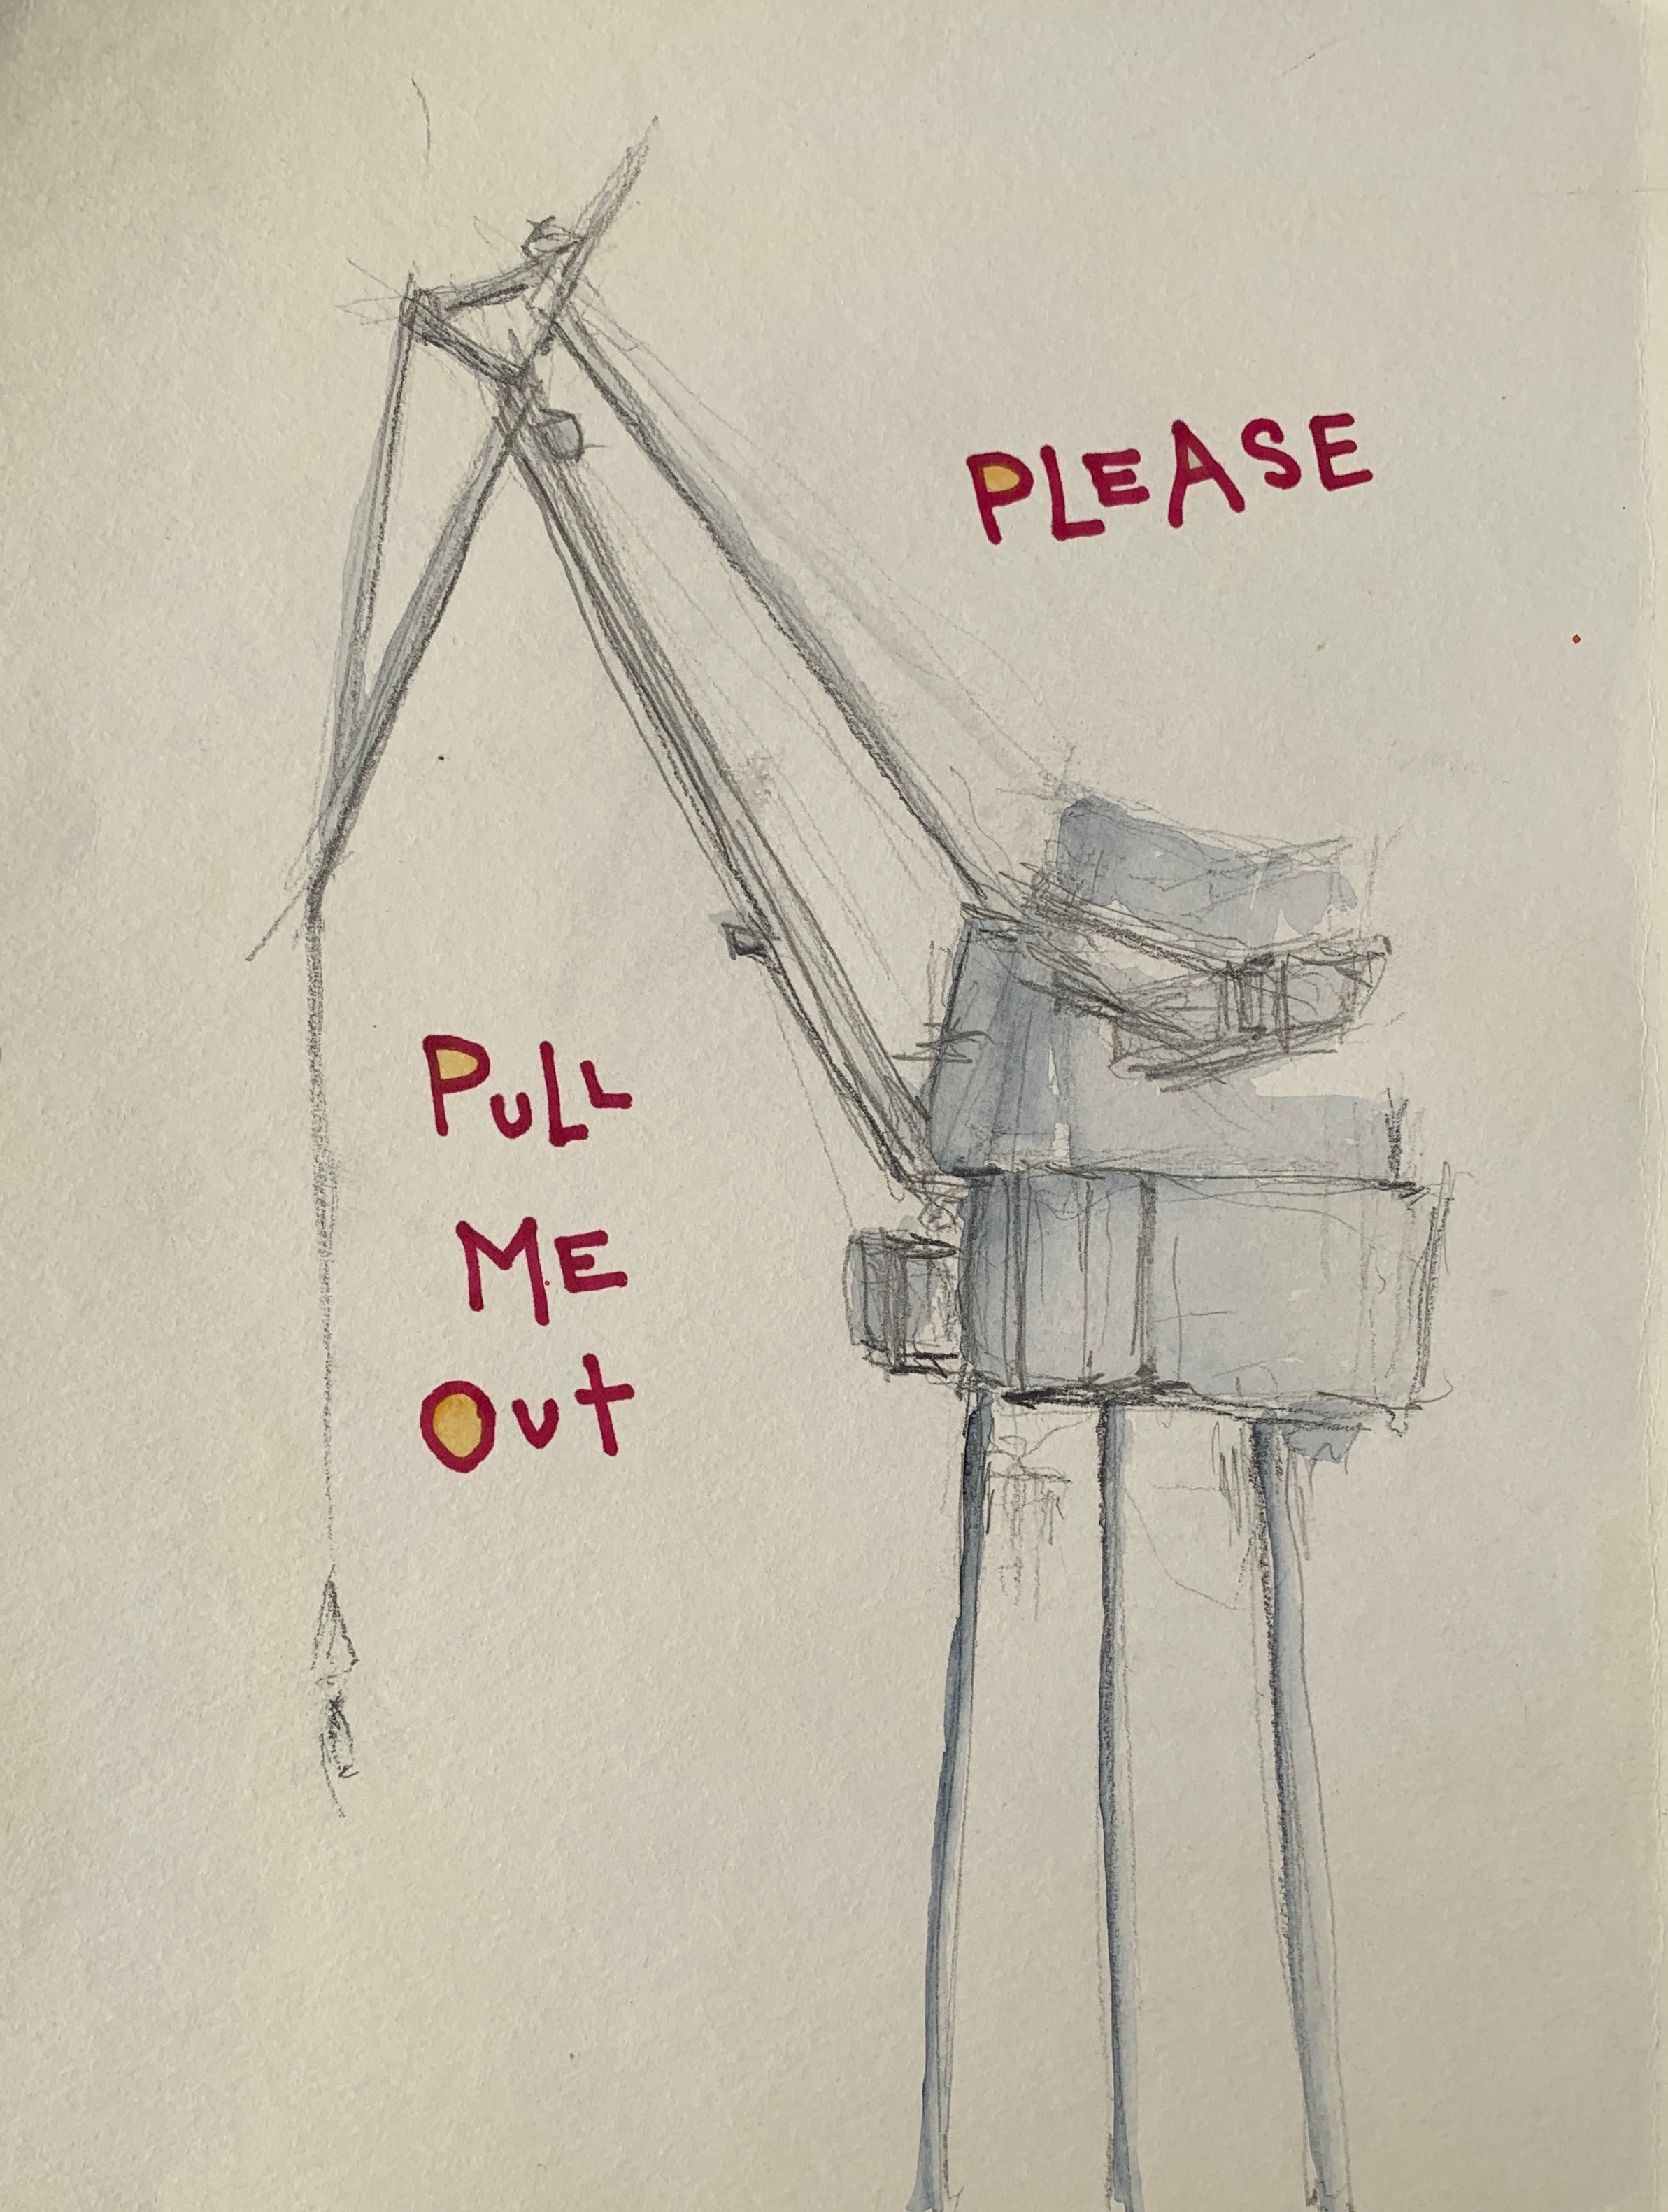 PLEASE
PULL
ME
OUT